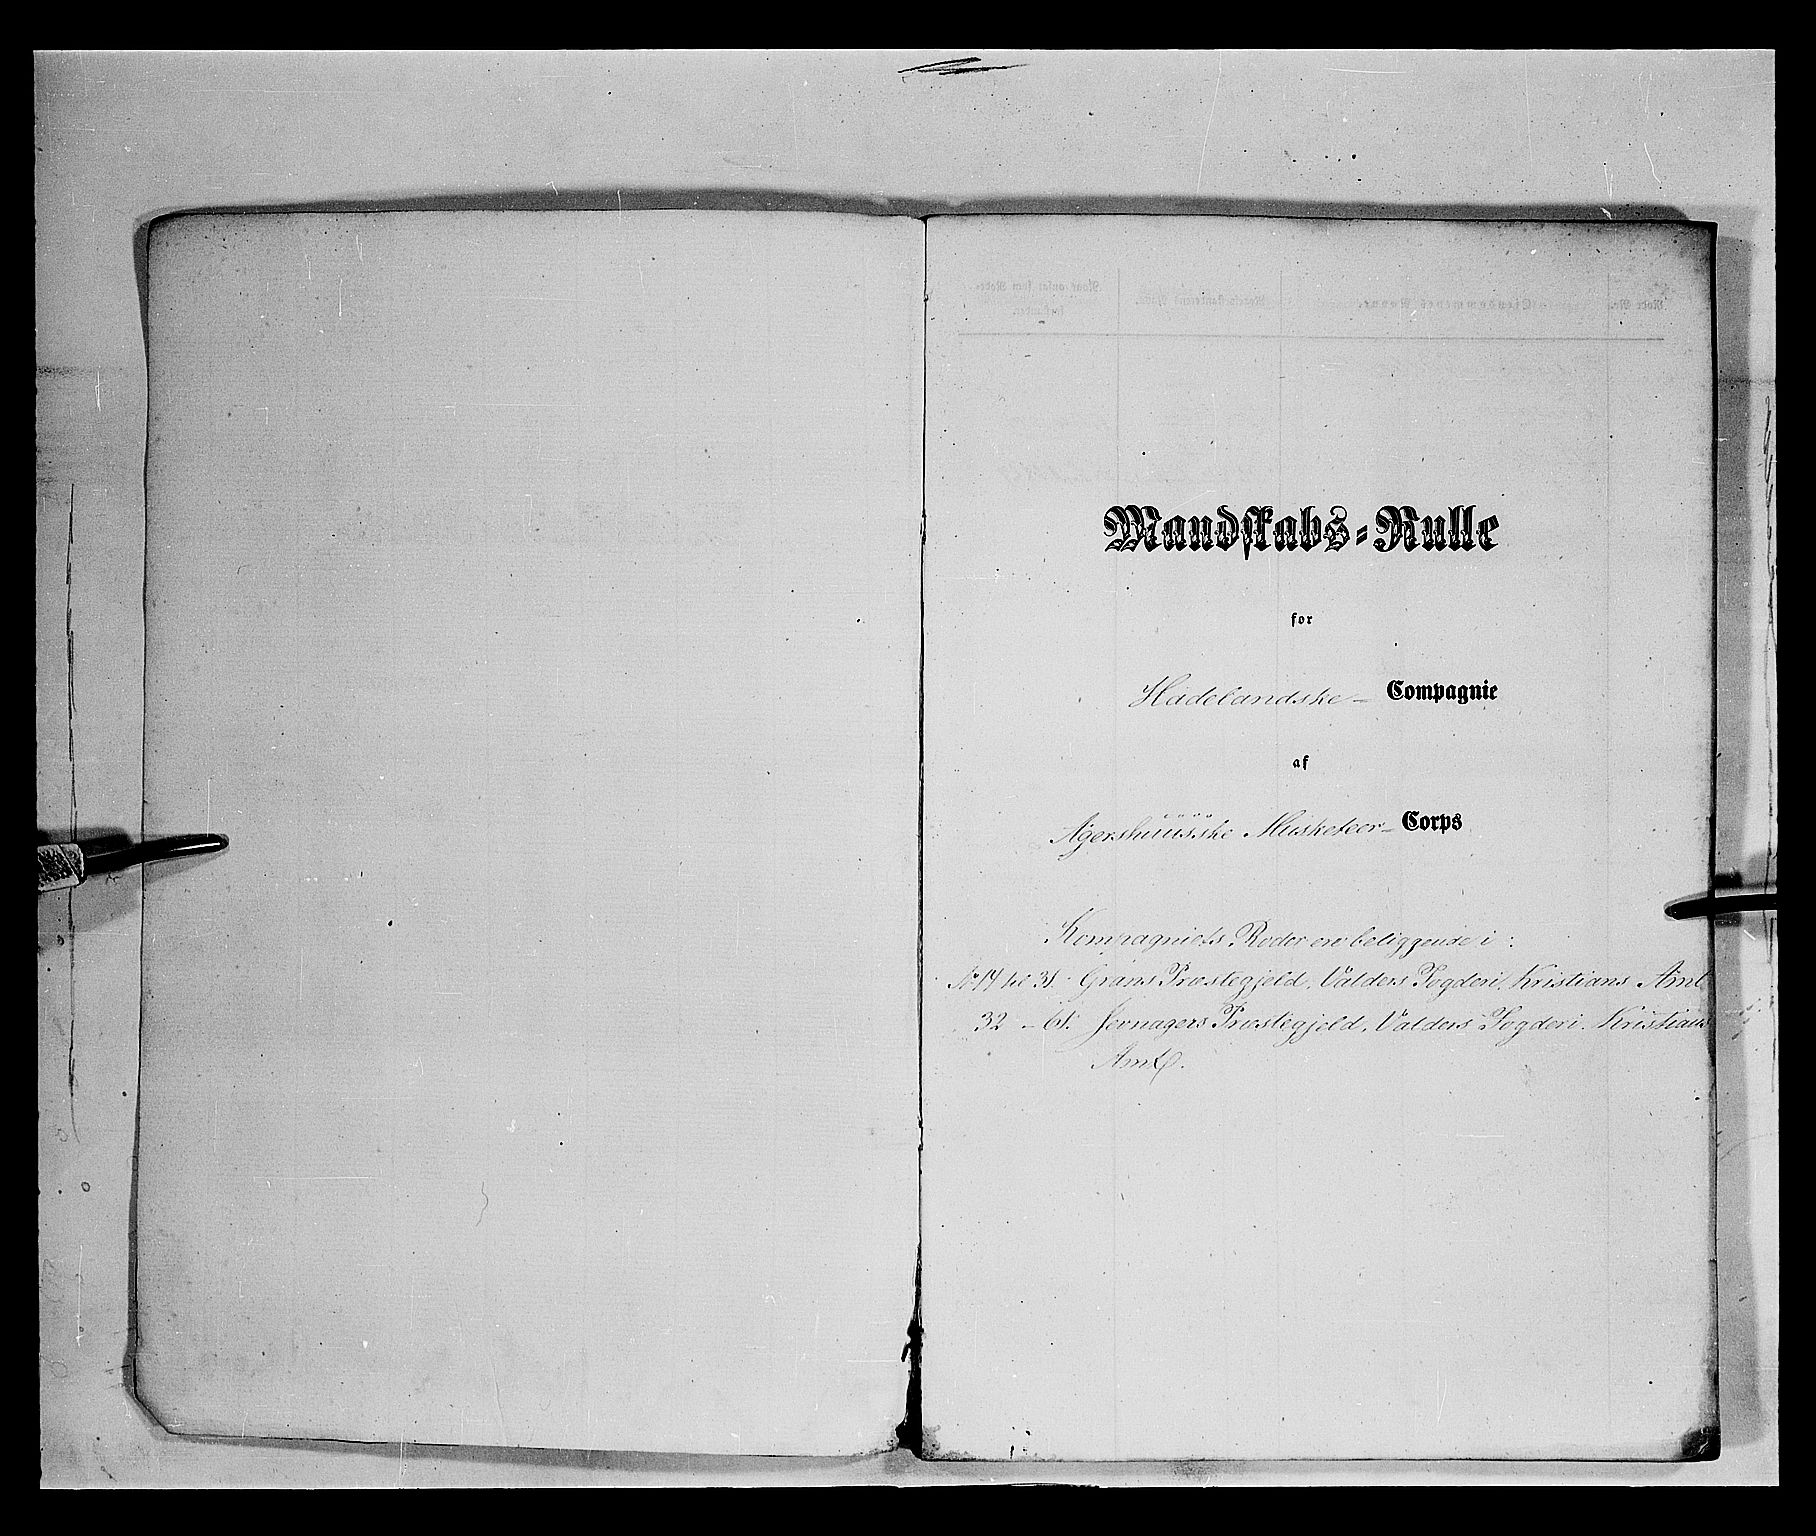 Mandskabs-Rulle
for
Hadelandske - Compagnie
af
Agershuusske Musketeer - Corps
Kompagniets Roder ere beliggende i:
No 14 til 31. Grans Præstegjeld, Valders Fogderi, Kristians Amt
32 - 61. Jevnagers Præstegjeld, Valders Fogderi. Kristians
Amt.